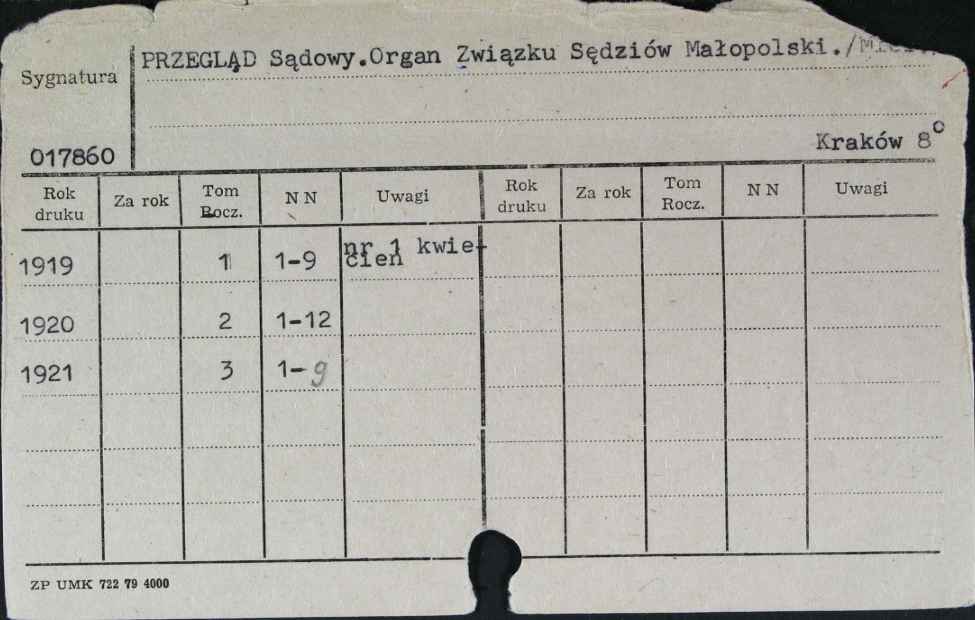 PRZEGLĄD Sądowy.Organ Związku Sędziów Małopolski.
Sygnatura
017860
Kraków 8°
Rok druku Za rok Tom Rocz. N N Uwagi Rok druku Za rok Tom Rocz. N N Uwagi
1919 1 1-9 nr 1 kwie-
cień
1920 2 1-12
1921 3 1-9
ZP UMK 722 79 4000